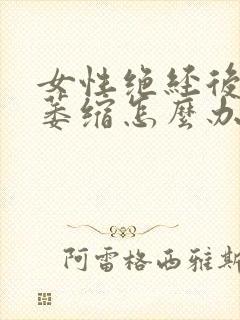 女性绝经後
萎缩怎麽办
阿雷格西雅斯